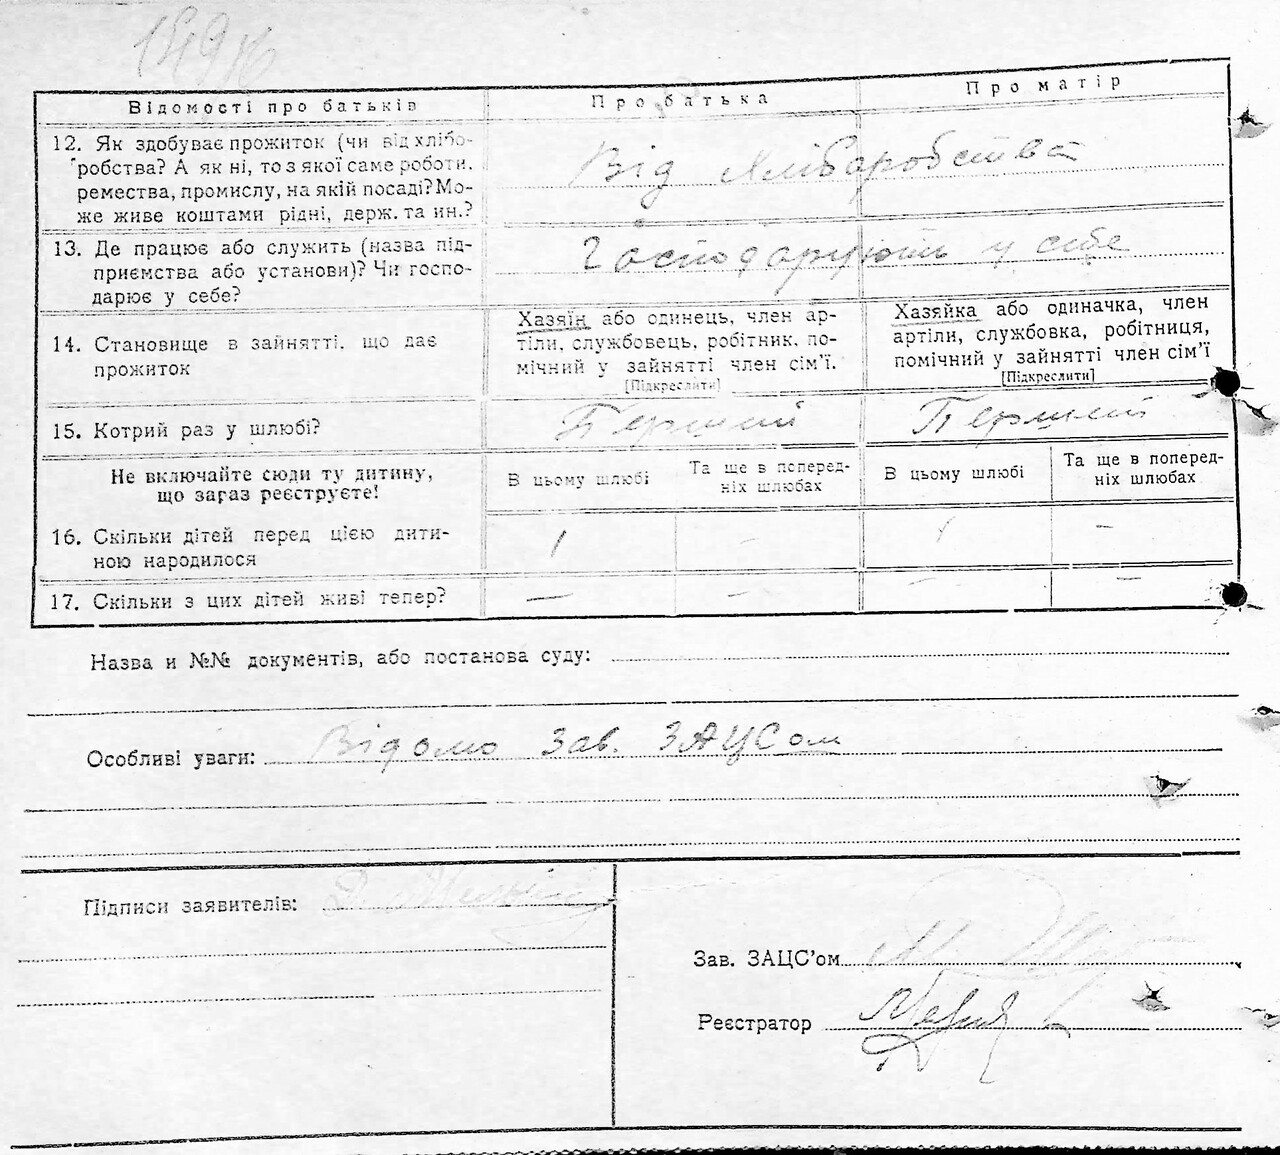 Відомості про батьків
Про батька
Про матір
12. Як здобуває прожиток (чи від хлібо-
робства? А як ні, то з якої саме роботи.
ремества, промислу, на якій посаді? Мо-
же живе коштами рідні, держ. та ин.?
Від хліборобства
13. Де працює або служить (назва під-
приємства або установи)? Чи госпо-
дарює у себе?
Господарують у себе
14. Становище в зайнятті, що дає
прожиток
Хазяїн або одинець, член ар-
тіли, службовець, робітник, по-
мічний у зайнятті член сім'ї.
[Підкреслити]
Хазяйка або одиначка, член
артіли, службовка, робітниця,
помічний у зайнятті член сім'ї
[Підкреслити]
15. Котрий раз у шлюбі?
Перший
Перший
Не включайте сюди ту дитину,
що зараз реєструєте!
В цьому шлюбі
Та ще в поперед-
ніх шлюбах
В цьому шлюбі
Та ще в поперед-
ніх шлюбах
16. Скільки дітей перед цією дити-
ною народилося
1 - 1 -
17. Скільки з цих дітей живі тепер?
- - - -
Назва и №№ документів, або постанова суду:
Особливі уваги: Відомо Зав. ЗАЦСом
Підписи заявителів:
Зав. ЗАЦС'ом
Реєстратор